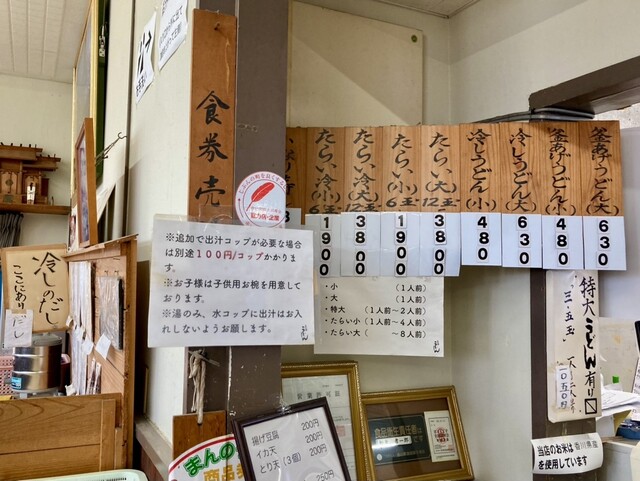 食券売
釜あげうどん(大)
630
釜あげうどん(小)
480
冷しうどん(大)
630
冷しうどん(小)
480
たらい(大)12玉
3800
たらい(小)6玉
1900
たらい冷(大)12玉
3800
たらい冷(小)6玉
1900
※追加で出汁コップが必要な場合
は別途100円/コップかかりま
す。
※お子様は子供用お椀を用意して
おります。
※湯のみ、水コップに出汁はお入
れしないようお願します。
・小 (1人前)
・大 (1人前)
・特大 (1人前~2人前)
・たらい小(1人前~4人前)
・たらい大( ~8人前)
特大うどん有り
三・五玉
一〇五〇円
当店のお米は香川県産
を使用しています
冷しのだし
ここにあり
だし
揚げ豆腐 200円
イカ天 200円
とり天(3個) 200円
250円
まんの
商品
食品衛生責任者
協力店・企業